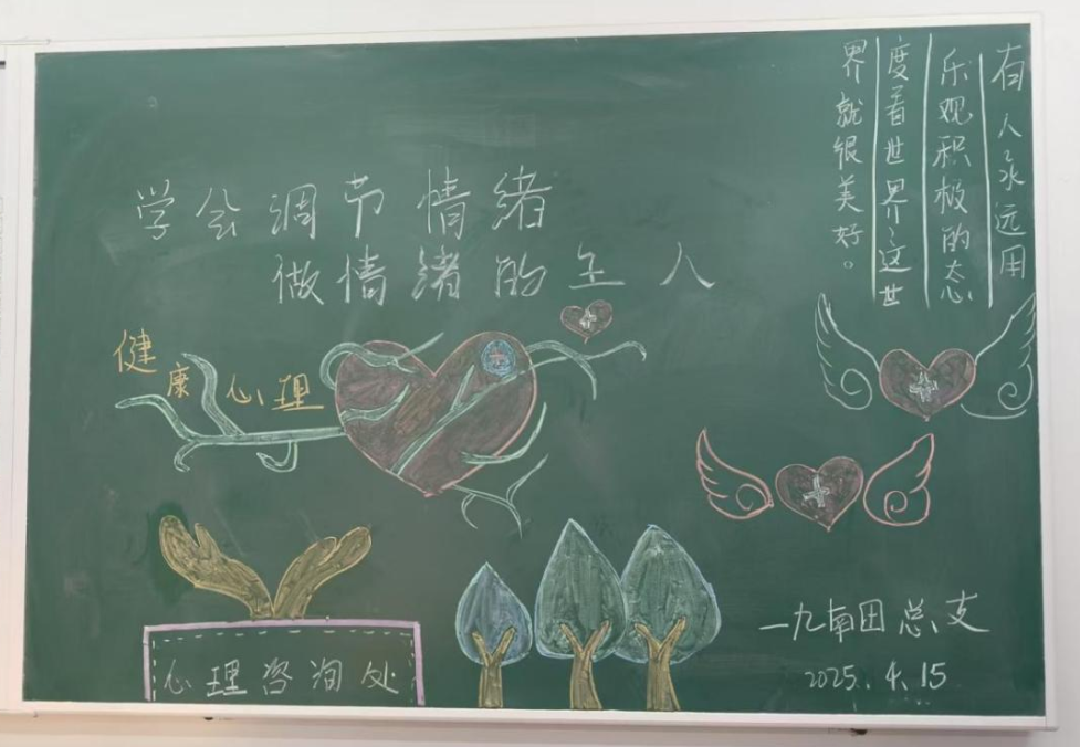 学会调节情绪
做情绪的主人
有人永远用
乐观积极的态
度看世界,这世
界就很美好。
健康心理
心理咨询处
一九南团总支
2025.4.15